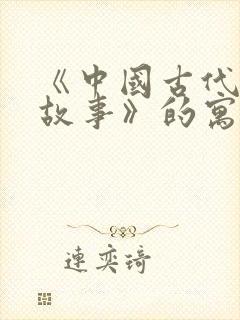 《中國古代
故事》的寓
連奕琦